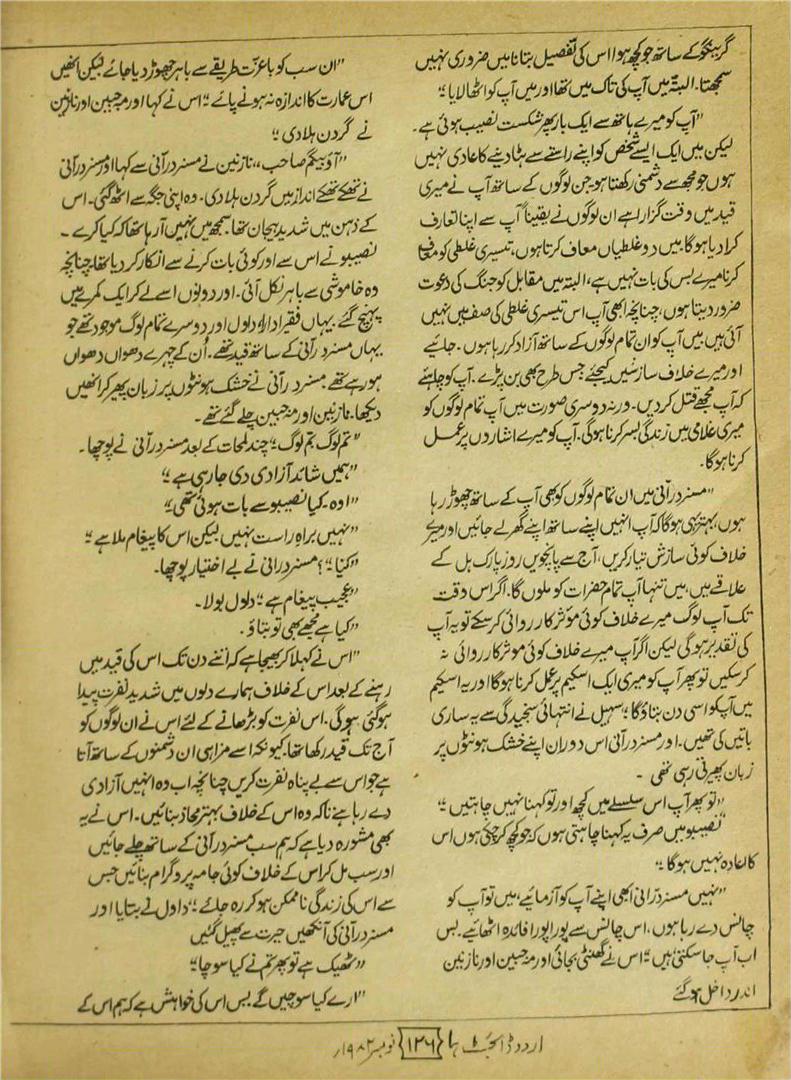 گرینگو کے ساتھ جو کچھ ہوا اس کی تفصیل بتانا میں ضروری نہیں
سمجھتا۔ البتہ میں آپ کی تاک میں تھا اور میں آپ کو اٹھا لایا“
”آپ کو میرے ہاتھ سے ایک بار پھر شکست نصیب ہوئی ہے۔
لیکن میں ایک ایسے شخص کو اپنے راستے سے ہٹا دینے کا عادی نہیں
ہوں جو مجھ سے دشمنی رکھتا ہو جن لوگوں کے ساتھ آپ نے میری
قید میں وقت گزارا ہے ان لوگوں نے یقیناً آپ سے اپنا تعارف
کرا دیا ہوگا۔ میں دو غلطیاں معاف کرتا ہوں، تیسری غلطی کو معاف
کرنا میرے بس کی بات نہیں ہے، البتہ میں مقابل کو جنگ کی دعوت
ضرور دیتا ہوں، چنانچہ ابھی آپ اس تیسری غلطی کی صف میں نہیں
آئی ہیں میں آپ کو ان تمام لوگوں کے ساتھ آزاد کر رہا ہوں۔ جائیے
اور میرے خلاف سازشیں کیجئے جس طرح بھی بن پڑے۔ آپ کو چاہئے
کہ آپ مجھے قتل کر دیں۔ ورنہ دوسری صورت میں آپ تمام لوگوں کو
میری غلامی میں زندگی بسر کرنا ہوگی۔ آپ کو میرے اشاروں پر عمل
کرنا ہوگا۔
”مسز درانی میں ان تمام لوگوں کو بھی آپ کے ساتھ چھوڑ رہا
ہوں، بہتر یہی ہوگا کہ آپ انہیں اپنے ساتھ اپنے گھر لے جائیں اور میرے
خلاف کوئی سازش تیار کریں، آج سے پانچویں روز پارک ہل کے
علاقے میں، میں تنہا آپ تمام حضرات کو ملوں گا۔ اگر اس وقت
تک آپ لوگ میرے خلاف کوئی مؤثر کارروائی کر سکے تو یہ آپ
کی تقدیر ہوگی لیکن اگر آپ میرے خلاف کوئی موثر کارروائی نہ
کر سکیں تو پھر آپ کو میری ایک اسکیم پر عمل کرنا ہوگا اور یہ اسکیم
میں آپ کو اسی دن بتاؤں گا“ سہیل نے انتہائی سنجیدگی سے یہ ساری
باتیں کی تھیں۔ اور مسز درانی اس دوران اپنے خشک ہونٹوں پر
زبان پھیرتی رہی تھی۔
”تو پھر آپ اس سلسلے میں کچھ اور تو کہنا نہیں چاہتیں“
”نصیبو میں صرف یہ کہنا چاہتی ہوں کہ جو کچھ کر چکی ہوں اس
کا اعادہ نہیں ہوگا“
”نہیں مسز درانی ابھی اپنے آپ کو آزمائیے، میں تو آپ کو
چانس دے رہا ہوں، اس چانس سے پورا پورا فائدہ اٹھائیے۔ بس
اب آپ جا سکتی ہیں“ اس نے گھنٹی بجائی اور مہ جبین اور نازنین
اندر داخل ہو گئے
”ان سب کو باعزت طریقے سے باہر چھوڑ دیا جائے لیکن انھیں
اس عمارت کا اندازہ نہ ہونے پائے“ اس نے کہا اور مہ جبین اور نازنین
نے گردن ہلا دی“
”آؤ بیگم صاحب،، نازنین نے مسز درانی سے کہا اور مسز درانی
نے تھکے تھکے انداز میں گردن ہلا دی۔ وہ اپنی جگہ سے اٹھ گئی۔ اس
کے ذہن میں شدید ہیجان تھا۔ سمجھ میں نہیں آ رہا تھا کہ کیا کرے۔
نصیبو نے اس سے اور کوئی بات کرنے سے انکار کر دیا تھا، چنانچہ
وہ خاموشی سے باہر نکل آئی۔ اور دونوں اسے لے کر ایک کمرے میں
پہنچ گئے۔ یہاں فقیرا، دارا، دلول اور دوسرے تمام لوگ موجود تھے جو
یہاں مسز درانی کے ساتھ قید تھے۔ اُن کے چہرے دھواں دھواں
ہو رہے تھے۔ مسز درانی نے خشک ہونٹوں پر زبان پھیر کر انھیں
دیکھا۔ نازنین اور مہ جبین چلے گئے تھے۔
”تم لوگ تم لوگ“ چند لمحات کے بعد مسز درانی نے پوچھا۔
”ہمیں شائد آزادی دی جا رہی ہے“
”اوہ۔ کیا نصیبو سے بات ہوئی تھی“
”نہیں براہ راست نہیں لیکن اس کا پیغام ملا ہے“
”کیا“؟ مسز درانی نے بے اختیار پوچھا۔
”عجیب پیغام ہے“ دلول بولا۔
”کیا ہے مجھے بھی تو بتاؤ۔
”اس نے کہلا کر بھیجا ہے کہ اتنے دن تک اس کی قید میں
رہنے کے بعد اس کے خلاف ہمارے دلوں میں شدید نفرت پیدا
ہو گئی ہوگی۔ اس نفرت کو بڑھانے کے لئے اس نے ان لوگوں کو
آج تک قید رکھا تھا کیونکہ اسے مزا ہی ان دشمنوں کے ساتھ آتا
ہے جو اس سے بے پناہ نفرت کریں چنانچہ اب وہ انہیں آزادی
دے رہا ہے تاکہ وہ اس کے خلاف بہتر محاذ بنائیں۔ اس نے یہ
بھی مشورہ دیا ہے کہ ہم سب مسز درانی کے ساتھ چلے جائیں
اور سب مل کر اس کے خلاف کوئی جامہ پروگرام بنائیں جس
سے اس کی زندگی ناممکن ہو کر رہ جائے“ داول نے بتایا اور
مسز درانی کی آنکھیں حیرت سے پھیل گئیں
”ٹھیک ہے تو پھر تم نے کیا سوچا“
”ارے کیا سوچیں گے بس اس کی خواہش ہے کہ ہم اس کے
اردو ڈائجسٹ ہما {۱۲۶} نومبر ۱۹۸۲ء